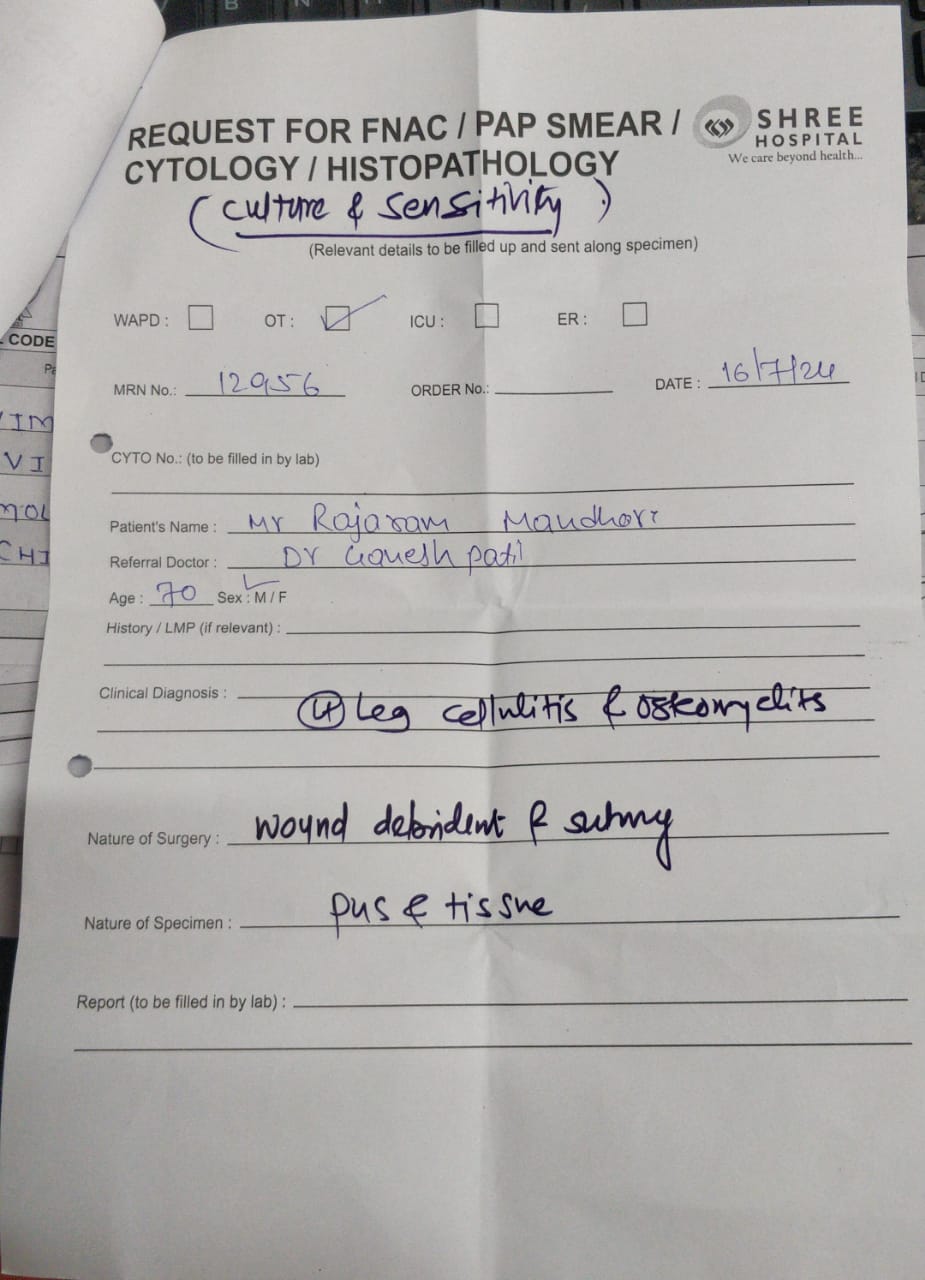 REQUEST FOR FNAC / PAP SMEAR /
CYTOLOGY / HISTOPATHOLOGY
SHREE
HOSPITAL
We care beyond health...
(culture & sensitivity)
(Relevant details to be filled up and sent along specimen)
WAPD : OT : ICU : ER :
MRN No.: 12956 ORDER No.: DATE : 16/7/24
CYTO No.: (to be filled in by lab)
Patient's Name : Mr Rajaram
Referral Doctor : Dr Ganesh patil
Age : 70 Sex : M / F
History / LMP (if relevant) :
Clinical Diagnosis :
Leg cellulitis & osteomyelits
Nature of Surgery : wound debrident &
Nature of Specimen : pus & tissue
Report (to be filled in by lab) :
CODE
IM
VI
CHI